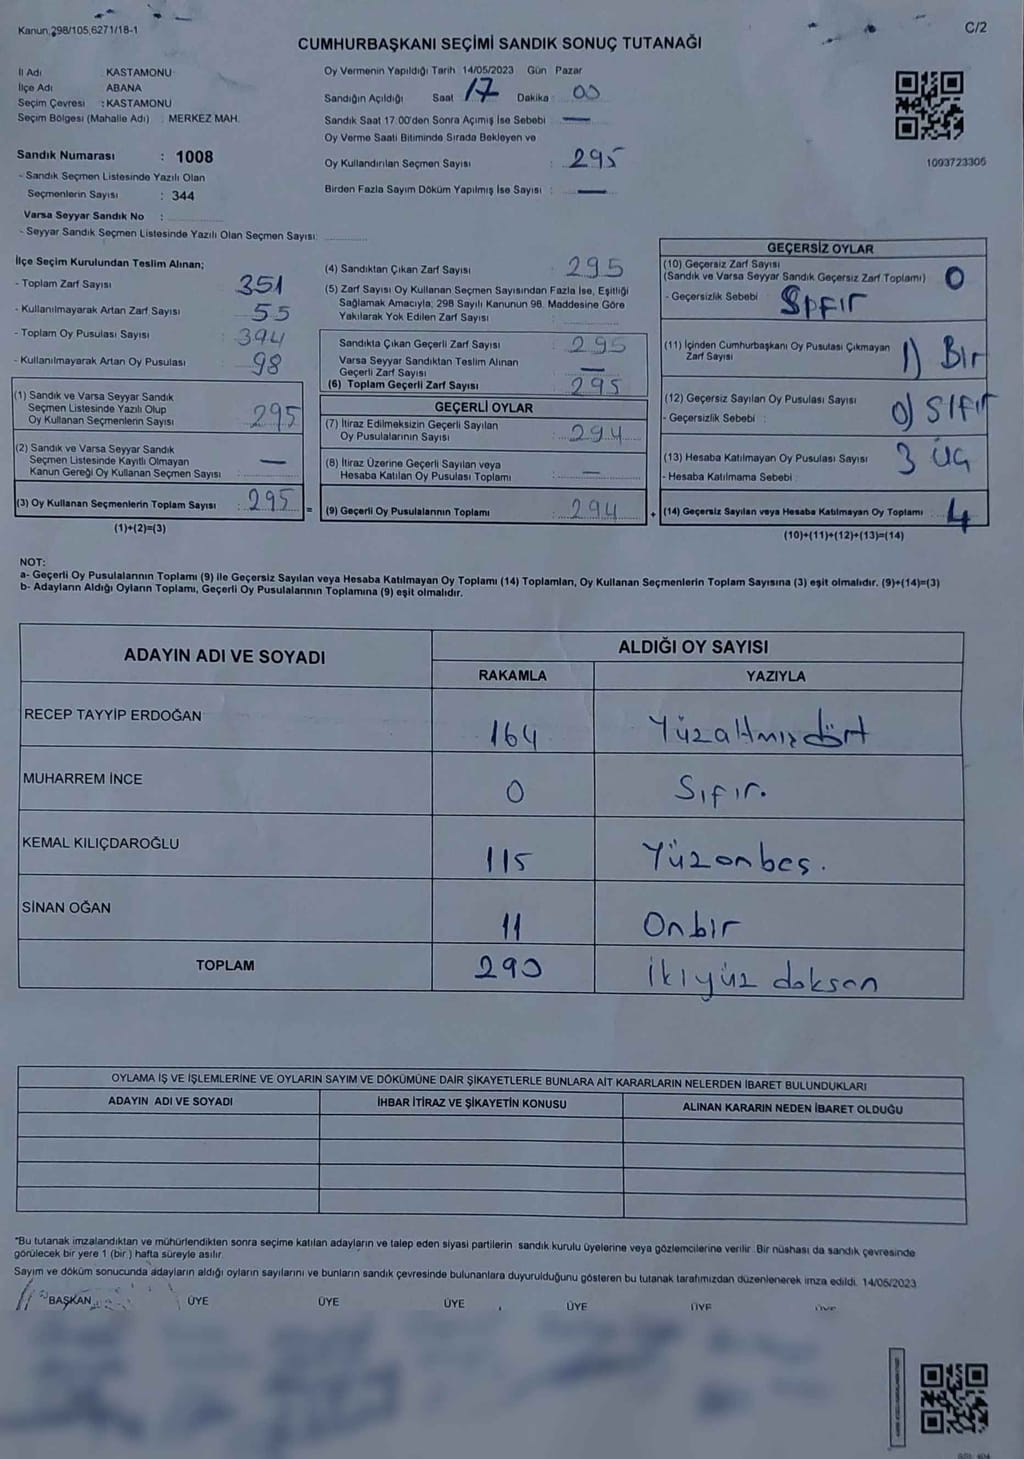 Kanun;298/105,6271/18-1
C/2
CUMHURBAŞKANI SEÇİMİ SANDIK SONUÇ TUTANAĞI
İl Adı : KASTAMONU
İlçe Adı : ABANA
Seçim Çevresi : KASTAMONU
Seçim Bölgesi (Mahalle Adı) : MERKEZ MAH.
Sandık Numarası : 1008
- Sandık Seçmen Listesinde Yazılı Olan
Seçmenlerin Sayısı : 344
Varsa Seyyar Sandık No :
- Seyyar Sandık Seçmen Listesinde Yazılı Olan Seçmen Sayısı:
Oy Vermenin Yapıldığı Tarih 14/05/2023 Gün Pazar
Sandığın Açıldığı Saat 17 Dakika : 00
Sandık Saat 17:00'den Sonra Açımış İse Sebebi : —
Oy Verme Saati Bitiminde Sırada Bekleyen ve
Oy Kullandırılan Seçmen Sayısı : 295
Birden Fazla Sayım Döküm Yapılmış İse Sayısı : —
1093723306
İlçe Seçim Kurulundan Teslim Alınan;
- Toplam Zarf Sayısı : 351
- Kullanılmayarak Artan Zarf Sayısı : 55
- Toplam Oy Pusulası Sayısı : 394
- Kullanılmayarak Artan Oy Pusulası : 98
(1) Sandık ve Varsa Seyyar Sandık
Seçmen Listesinde Yazılı Olup
Oy Kullanan Seçmenlerin Sayısı : 295
(2) Sandık ve Varsa Seyyar Sandık
Seçmen Listesinde Kayıtlı Olmayan
Kanun Gereği Oy Kullanan Seçmen Sayısı : —
(3) Oy Kullanan Seçmenlerin Toplam Sayısı : 295 =
(1)+(2)=(3)
(4) Sandıktan Çıkan Zarf Sayısı : 295
(5) Zarf Sayısı Oy Kullanan Seçmen Sayısından Fazla İse, Eşitliği
Sağlamak Amacıyla; 298 Sayılı Kanunun 98. Maddesine Göre
Yakılarak Yok Edilen Zarf Sayısı :
Sandıkta Çıkan Geçerli Zarf Sayısı : 295
Varsa Seyyar Sandıktan Teslim Alınan
Geçerli Zarf Sayısı : —
(6) Toplam Geçerli Zarf Sayısı : 295
GEÇERLİ OYLAR
(7) İtiraz Edilmeksizin Geçerli Sayılan
Oy Pusulalarının Sayısı : 294
(8) İtiraz Üzerine Geçerli Sayılan veya
Hesaba Katılan Oy Pusulası Toplamı : —
(9) Geçerli Oy Pusulalarının Toplamı : 294 +
GEÇERSİZ OYLAR
(10) Geçersiz Zarf Sayısı
(Sandık ve Varsa Seyyar Sandık Geçersiz Zarf Toplamı) : 0
- Geçersizlik Sebebi : Sıfır
(11) İçinden Cumhurbaşkanı Oy Pusulası Çıkmayan
Zarf Sayısı 1) Bir
(12) Geçersiz Sayılan Oy Pusulası Sayısı : 0) SIFIR
- Geçersizlik Sebebi :
(13) Hesaba Katılmayan Oy Pusulası Sayısı : 3 üç
- Hesaba Katılmama Sebebi :
(14) Geçersiz Sayılan veya Hesaba Katılmayan Oy Toplamı : 4
(10)+(11)+(12)+(13)=(14)
NOT:
a- Geçerli Oy Pusulalarının Toplamı (9) ile Geçersiz Sayılan veya Hesaba Katılmayan Oy Toplamı (14) Toplamları, Oy Kullanan Seçmenlerin Toplam Sayısına (3) eşit olmalıdır. (9)+(14)=(3)
b- Adayların Aldığı Oyların Toplamı, Geçerli Oy Pusulalarının Toplamına (9) eşit olmalıdır.
ADAYIN ADI VE SOYADI
ALDIĞI OY SAYISI
RAKAMLA YAZIYLA
RECEP TAYYİP ERDOĞAN 164 Yüzaltmışdört
MUHARREM İNCE 0 Sıfır.
KEMAL KILIÇDAROĞLU 115 Yüzonbeş.
SİNAN OĞAN 11 Onbir
TOPLAM 290 ikiyüz doksan
OYLAMA İŞ VE İŞLEMLERİNE VE OYLARIN SAYIM VE DÖKÜMÜNE DAİR ŞİKAYETLERLE BUNLARA AİT KARARLARIN NELERDEN İBARET BULUNDUKLARI
ADAYIN ADI VE SOYADI İHBAR İTİRAZ VE ŞİKAYETİN KONUSU ALINAN KARARIN NEDEN İBARET OLDUĞU
"Bu tutanak imzalandıktan ve mühürlendikten sonra seçime katılan adayların ve talep eden siyasi partilerin sandık kurulu üyelerine veya gözlemcilerine verilir. Bir nüshası da sandık çevresinde
görülecek bir yere 1 (bir) hafta süreyle asılır.
Sayım ve döküm sonucunda adayların aldığı oyların sayılarını ve bunların sandık çevresinde bulunanlara duyurulduğunu gösteren bu tutanak tarafımızdan düzenlenerek imza edildi. 14/05/2023
BAŞKAN ÜYE ÜYE ÜYE ÜYE ÜYE ÜYE